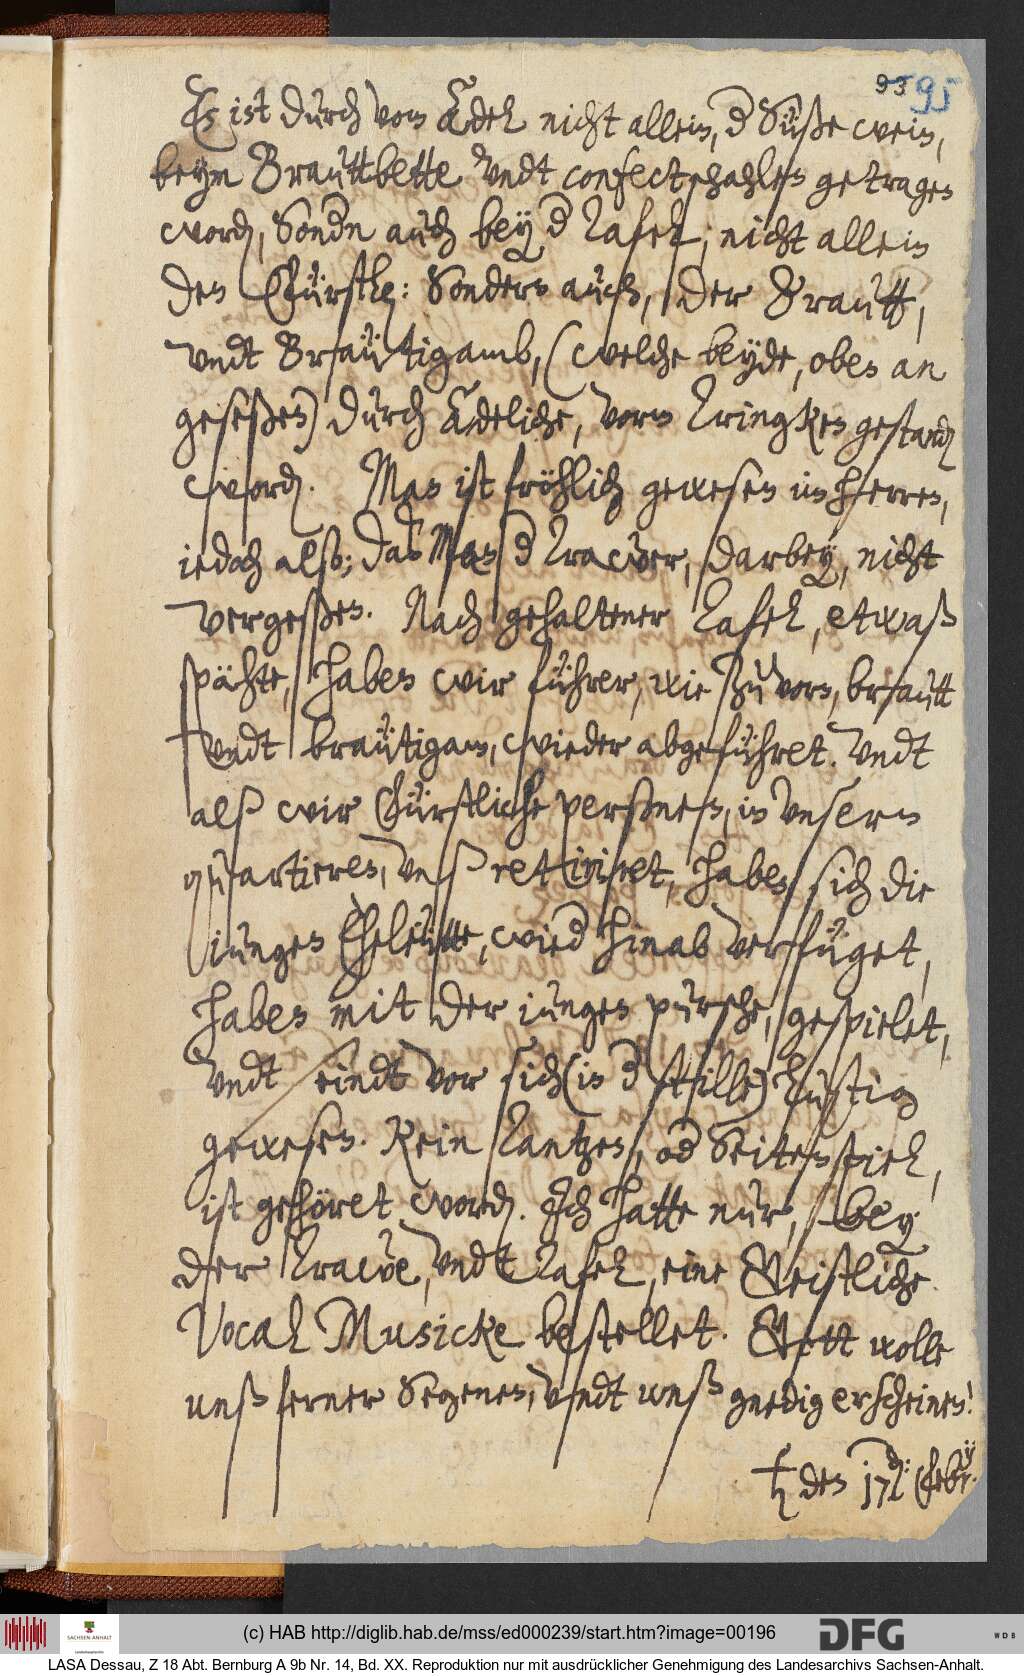 93 95
Es ist durch vom Adel nicht allein, d Süße wein,
beym Brauttbette undt confectschahlen getragen
word, Sond'n auch bey d Tafel, nicht allein
den Fürstl: Sondern auch, der Brautt,
undt Braütigamb, (welche beyde, oben an
geseßen) durch Adeliche, vorm Trincken gestand
word. Man ist fröhlich gewesen im Herren,
iedoch also, daß Man d Trawer, darbey, nicht
vergeßen. Nach gehaltener Tafel, etwaß
spähte, haben wir führer, wie zu vorn, brautt
undt braütigam, wieder abgeführet. Undt
alß wir Fürstliche persohnen, in Unsern
quartieren, Unß retiriret, haben sich die
iungen Eheleütte, wied hinab verfüget,
haben mit der iungen pursche, gespielet,
undt seindt vor sich (in d stille) lustig
gewesen. Kein Tantzen, od Seitenspiel,
ist gehöret word. Ich hatte nur, bey
der Trawe, undt Tafel, eine Geistliche
Vocal Musicke bestellet. Gott wolle
unß ferner Segenen, undt unß gnedig erscheinen!
♄ den 17d: Feb.
(c) HAB http://diglib.hab.de/mss/ed000239/start.htm?image=00196
SACHSEN-ANHALT
DFG
WDB
LASA Dessau, Z 18 Abt. Bernburg A 9b Nr. 14, Bd. XX. Reproduktion nur mit ausdrücklicher Genehmigung des Landesarchivs Sachsen-Anhalt.